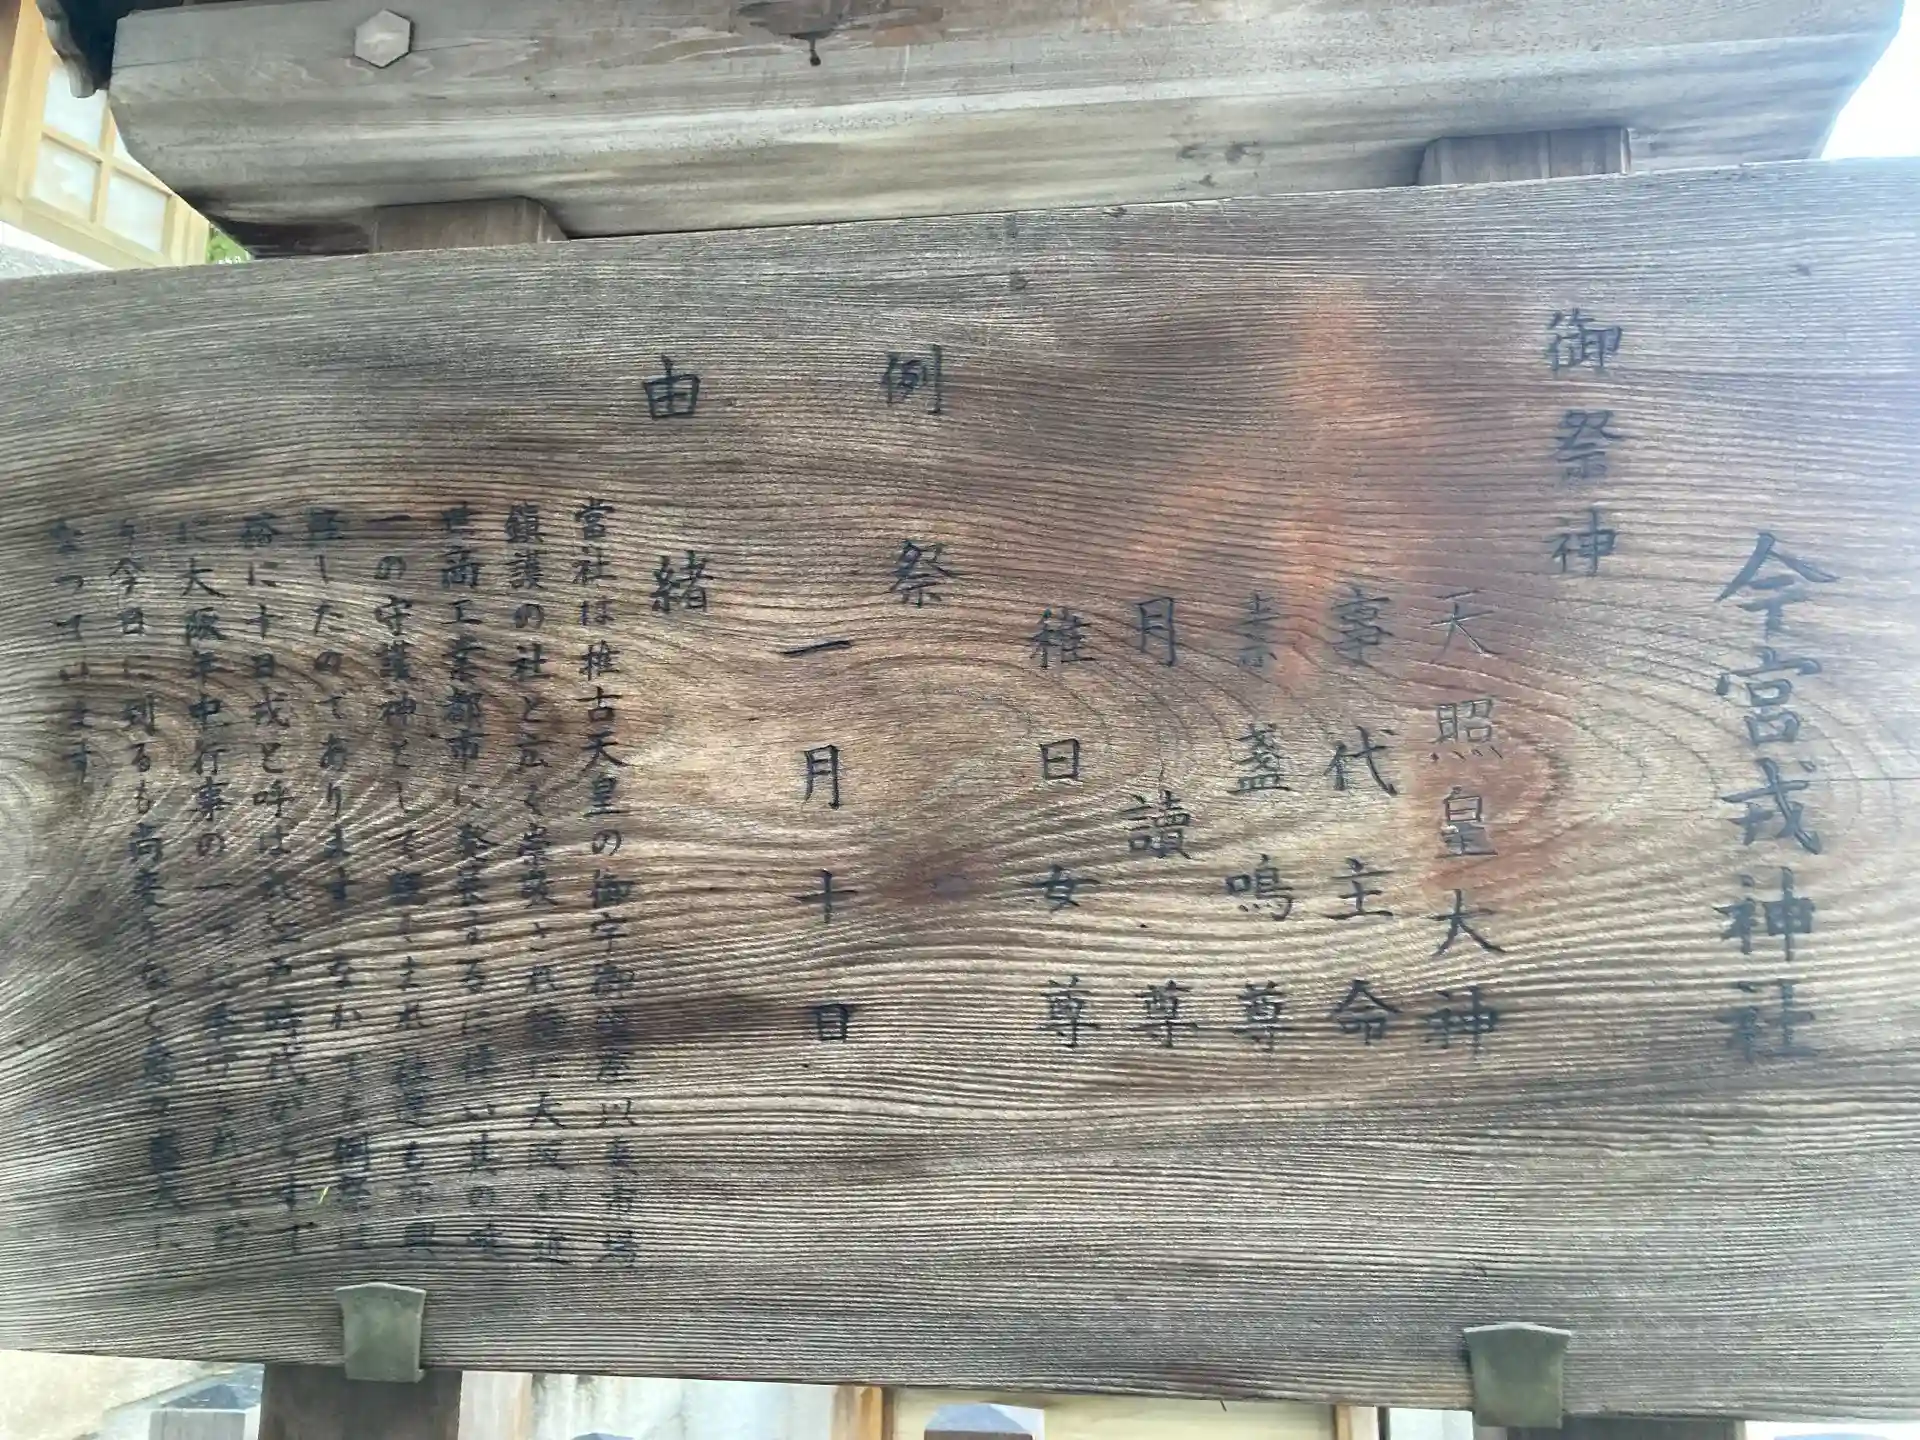 今宮戎神社
御祭神
天照皇大神
事代主命
素盞嗚尊
月讀尊
稚日女尊
例祭
一月十日
由緒
當社は推古天皇の御宇御鎮座以来市場
鎮護の社と広く崇敬され 大阪が近
世商工業都市に発展するに伴い其の唯
一の守護神として
したのであります なかでも例祭は
俗に十日戎と呼ばれ 時代から
に大阪年中行事の一
今日に到るも尚
なつています